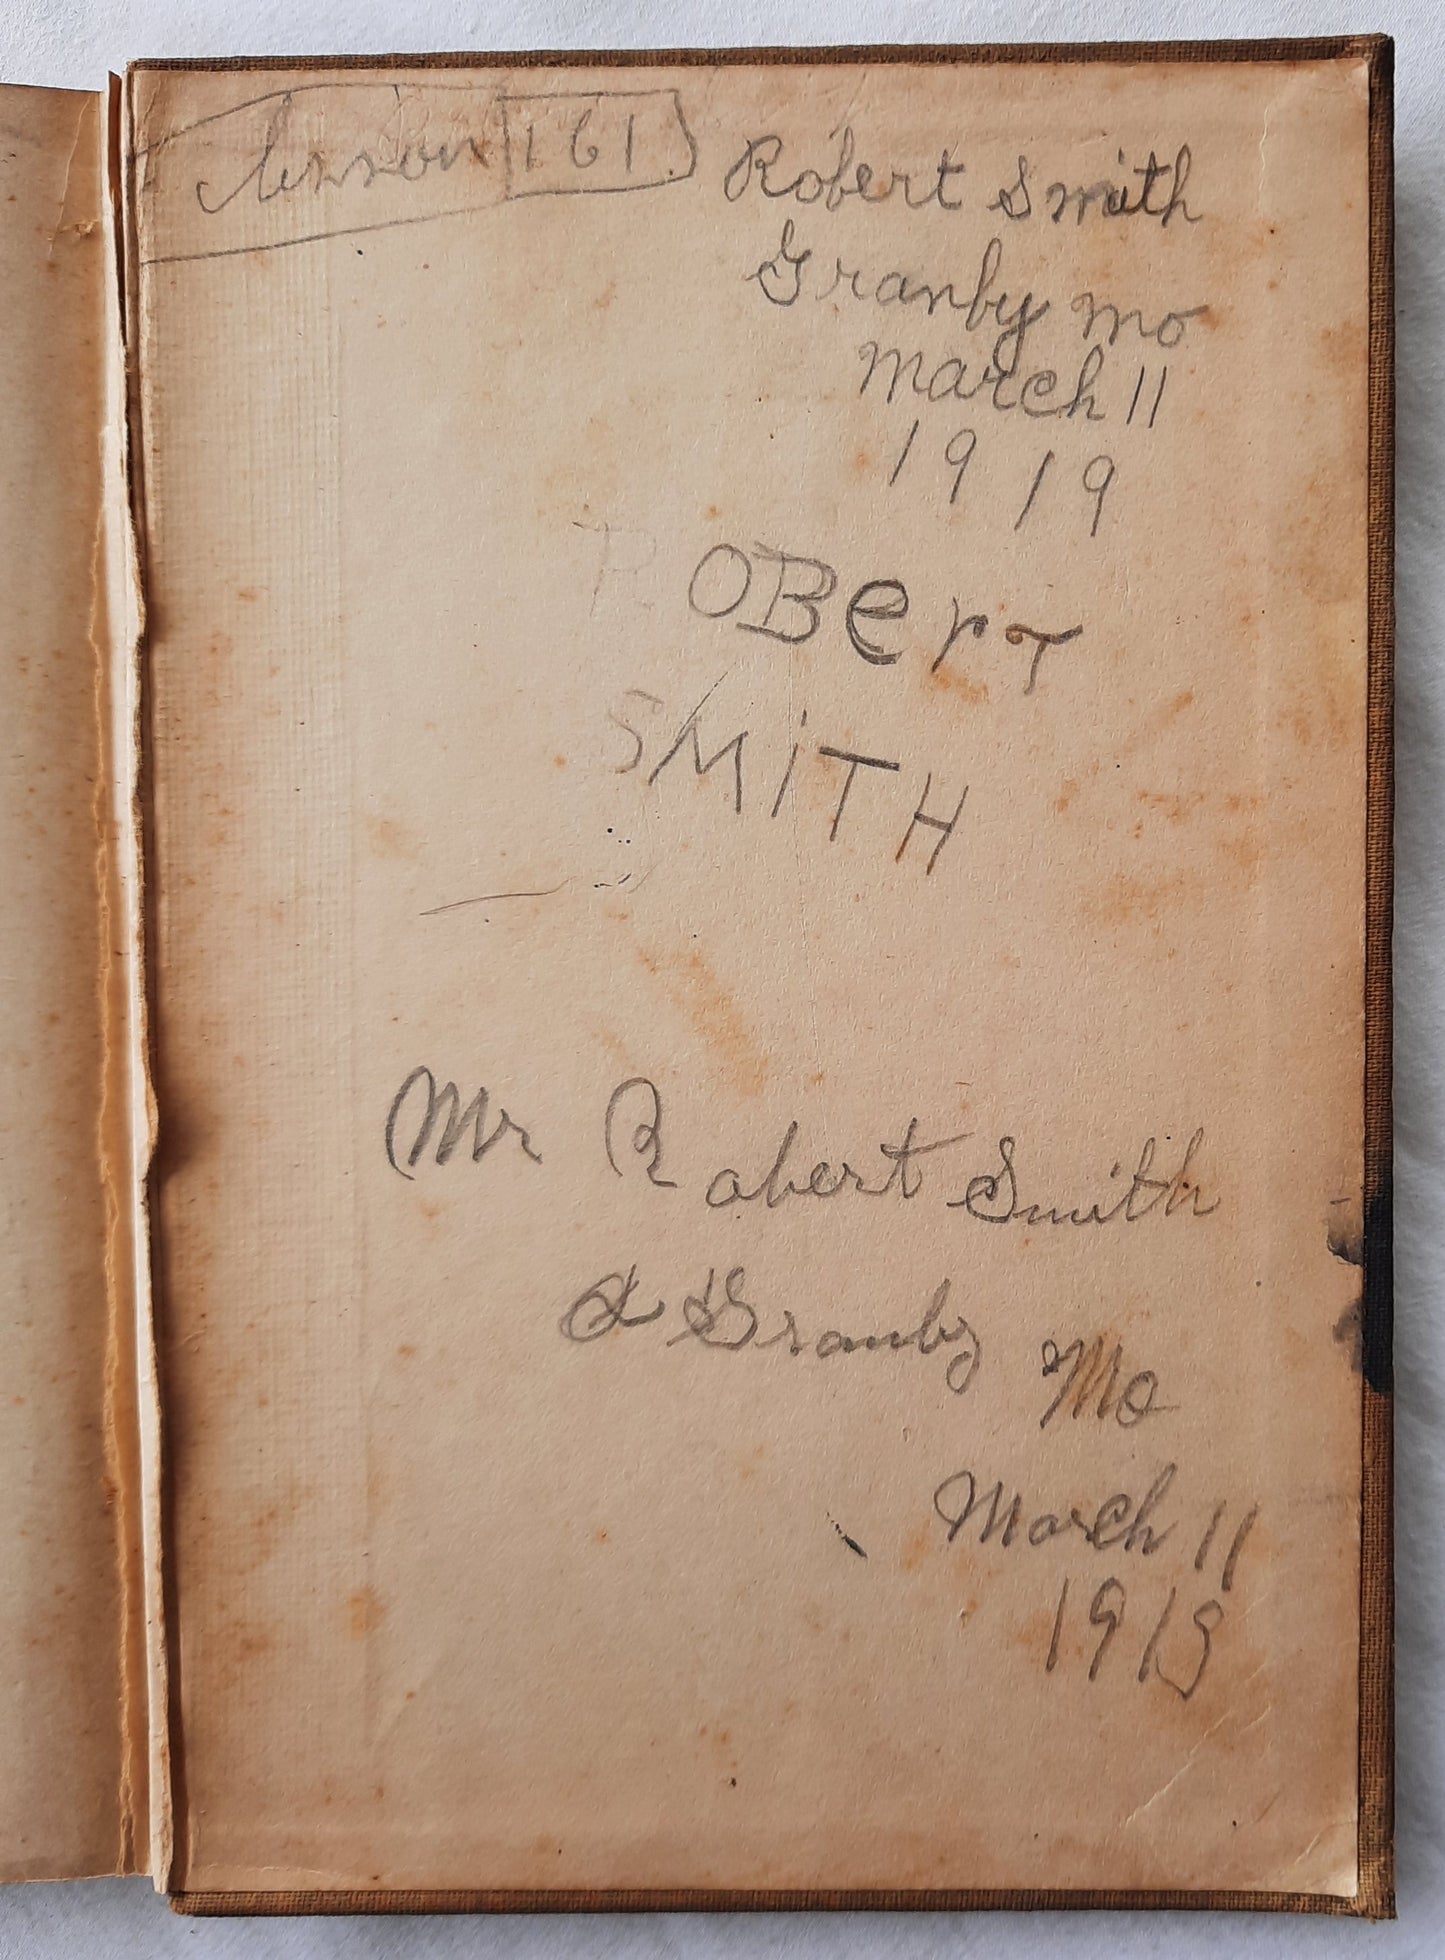 lesson 161
Robert Smith
Granby Mo
March 11
1919
ROBerT
SMiTH
Mr Robert Smith
Granby Mo
March 11
1919